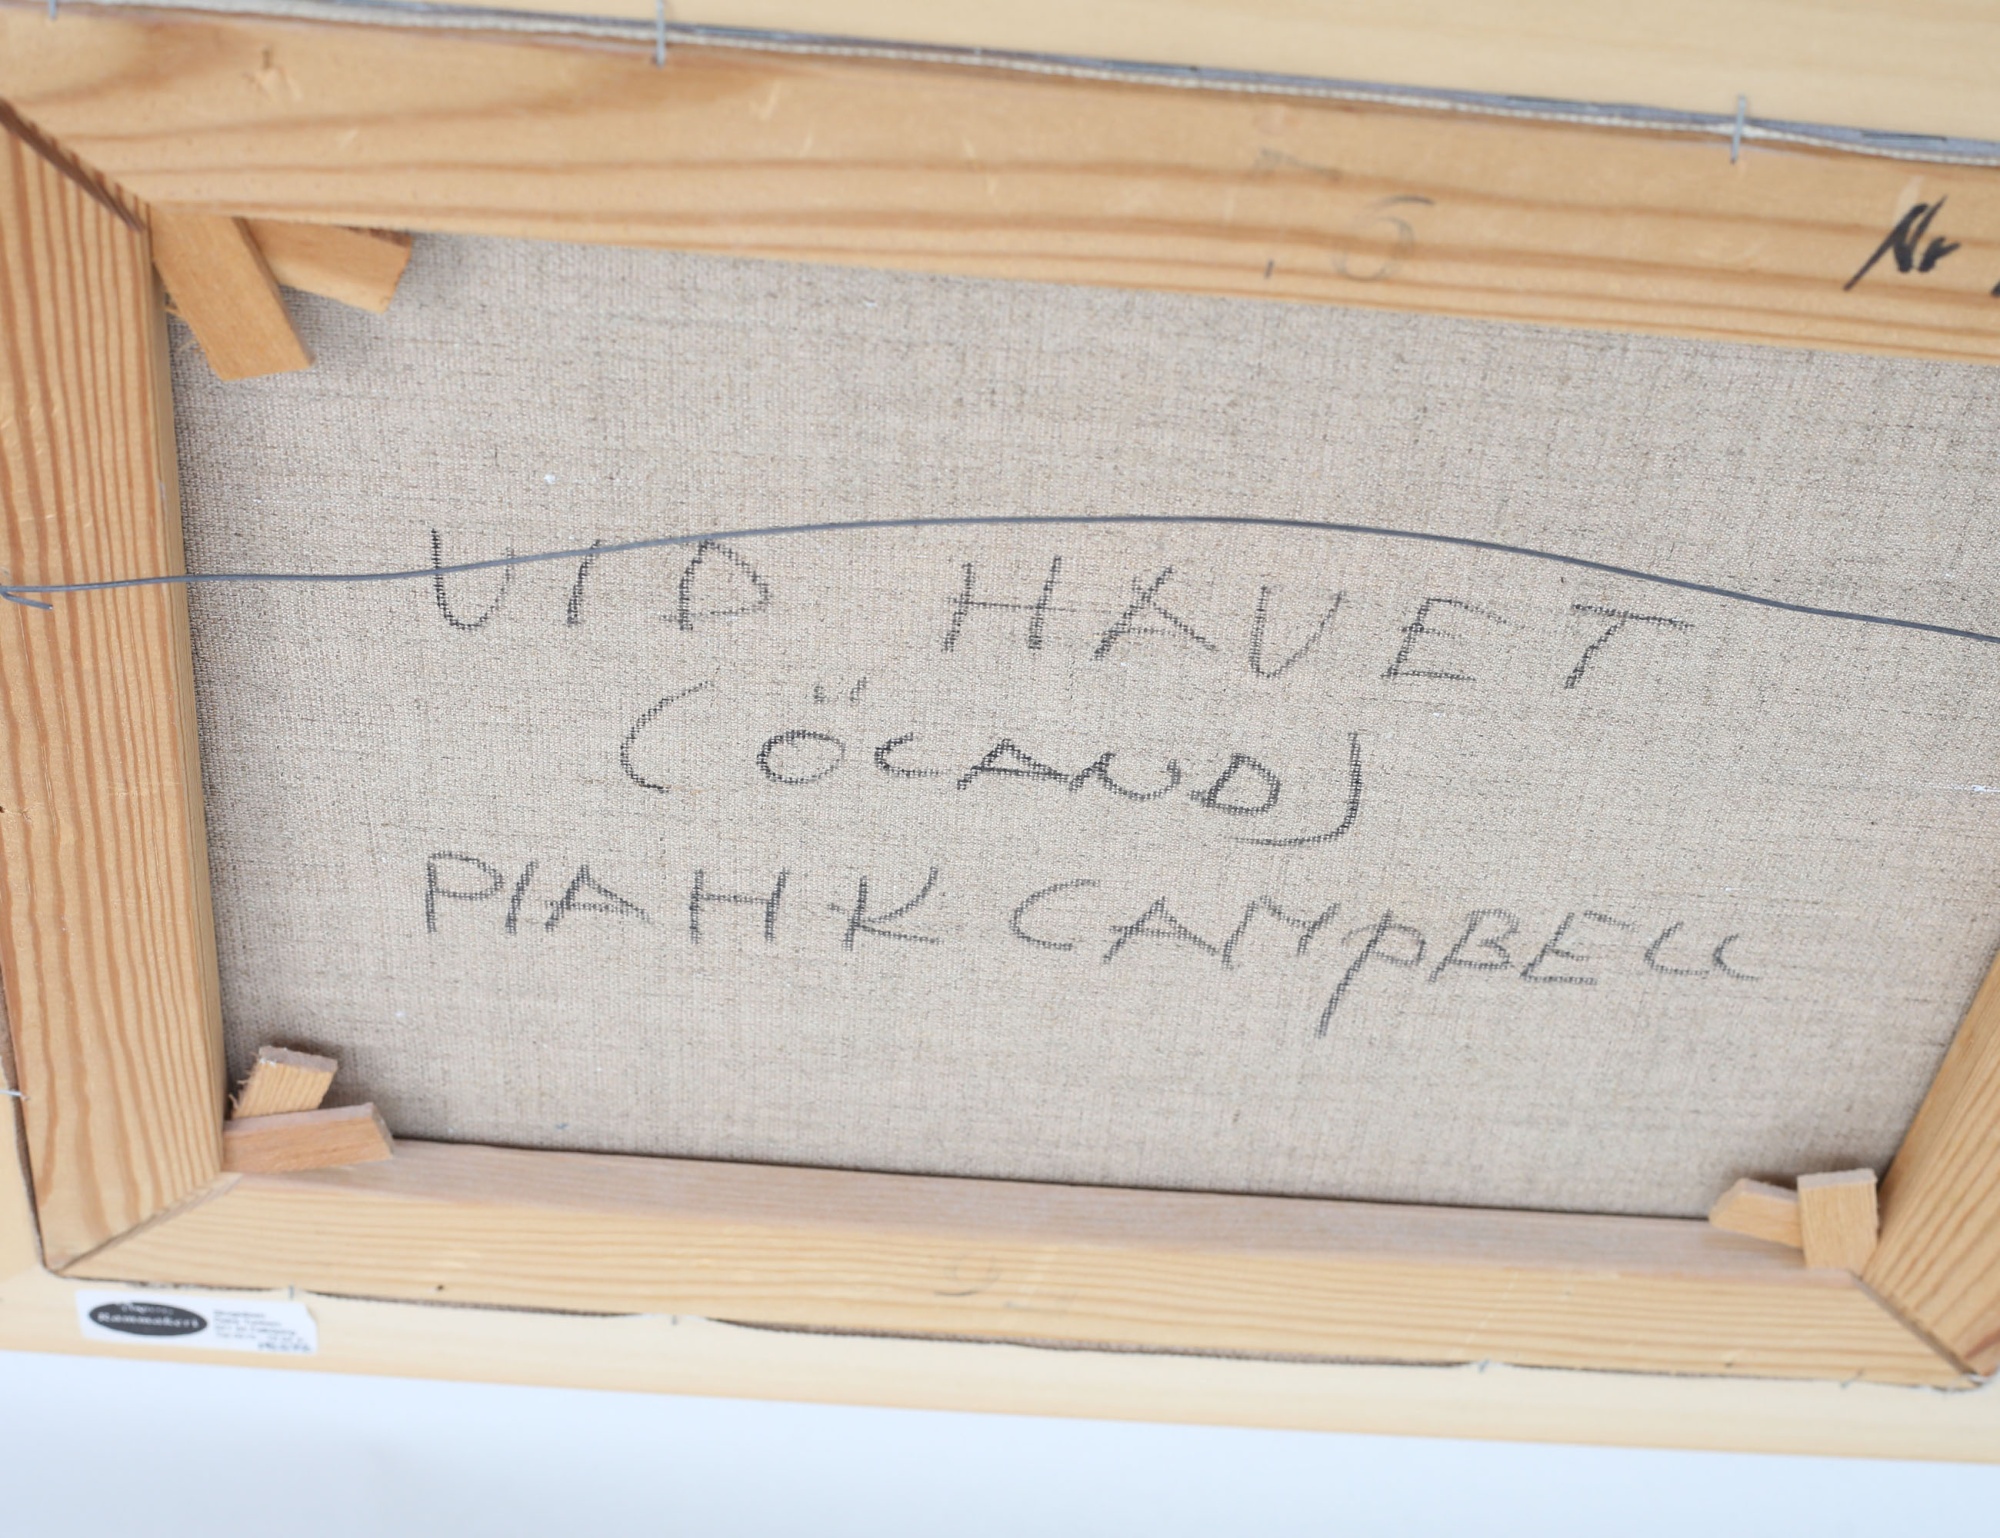 Nr
6
VID HAVET
(ÖLAND)
PIA H K CAMPBELL
Rammakeri